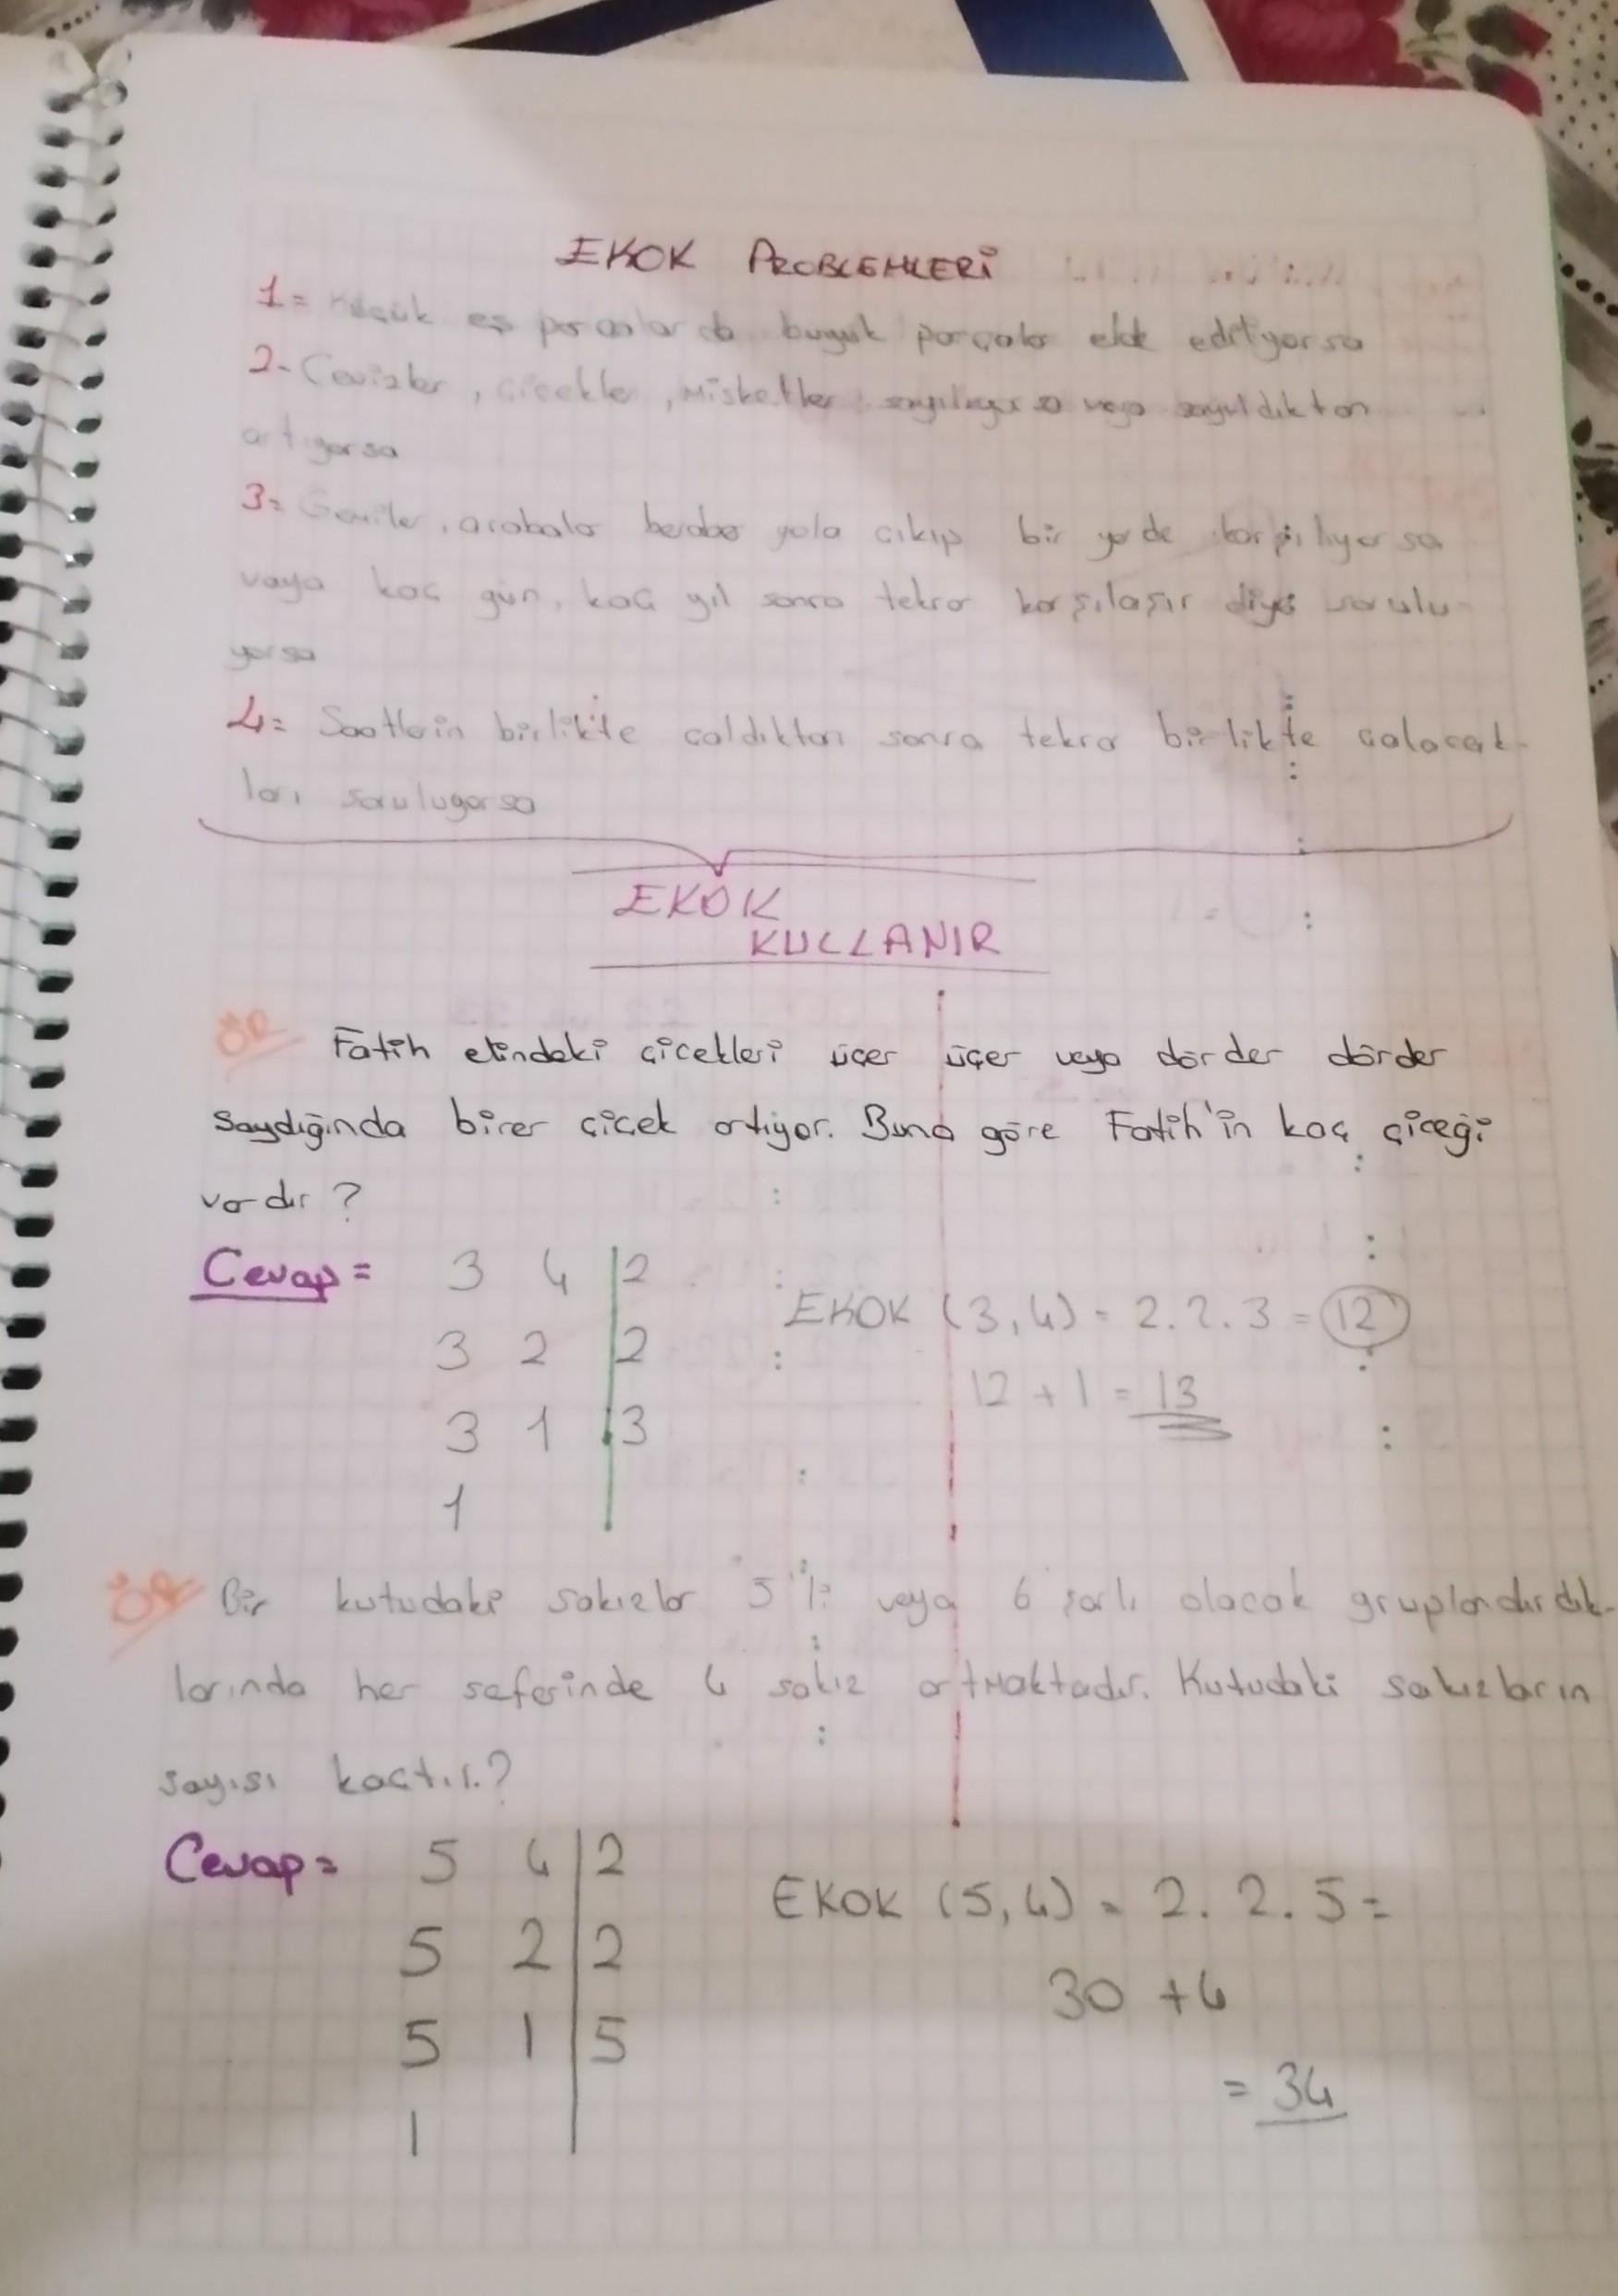 EKOK PROBLEMLERİ
1= Küçük eş parçalarda büyük parçalar elde ediliyorsa
2- Cevizler, çiçekler, misketler sayılıyorsa veya sayıldıktan
artıyorsa
3= Gemiler, arabalar beraber yola çıkıp bir yerde karşılıyorsa
vaya kaç gün, kaç yıl sonra tekrar karşılaşır diye sorulu-
yorsa
4= Saatlerin birlikte çaldıktan sonra tekrar birlikte çalacak-
ları soruluyorsa
EKOK
KULLANIR
ÖR Fatih elindeki çiçekleri üçer üçer veya dörder dörder
saydığında birer çiçek artıyor. Buna göre Fatih'in kaç çiçeği
vardır?
Cevap= 3 4 | 2
3 2 | 2
3 1 | 3
1
EKOK (3,4) = 2.2.3 = 12
12 + 1 = 13
ÖR Bir kutudaki sakızlar 5'li veya 6 şarlı olacak gruplandırdık-
larında her seferinde 4 sakız artmaktadır. Kutudaki sakızların
sayısı kaçtır.?
Cevap= 5 4 | 2
5 2 | 2
5 1 | 5
1
EKOK (5,4) = 2. 2. 5 =
30 + 4
= 34